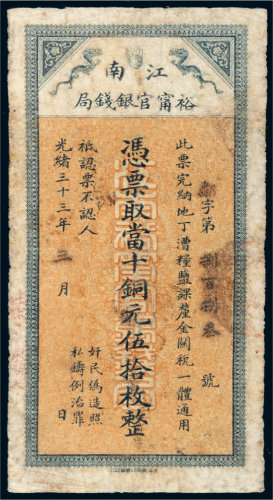 江南
裕甯官銀錢局
字第捌百捌叁號
此票完納地丁漕糧鹽課釐金關稅一體通用
憑票取當十銅元伍拾枚整
祗認票不認人
光緒三十三年三月日
奸民偽造照
私鑄例治罪